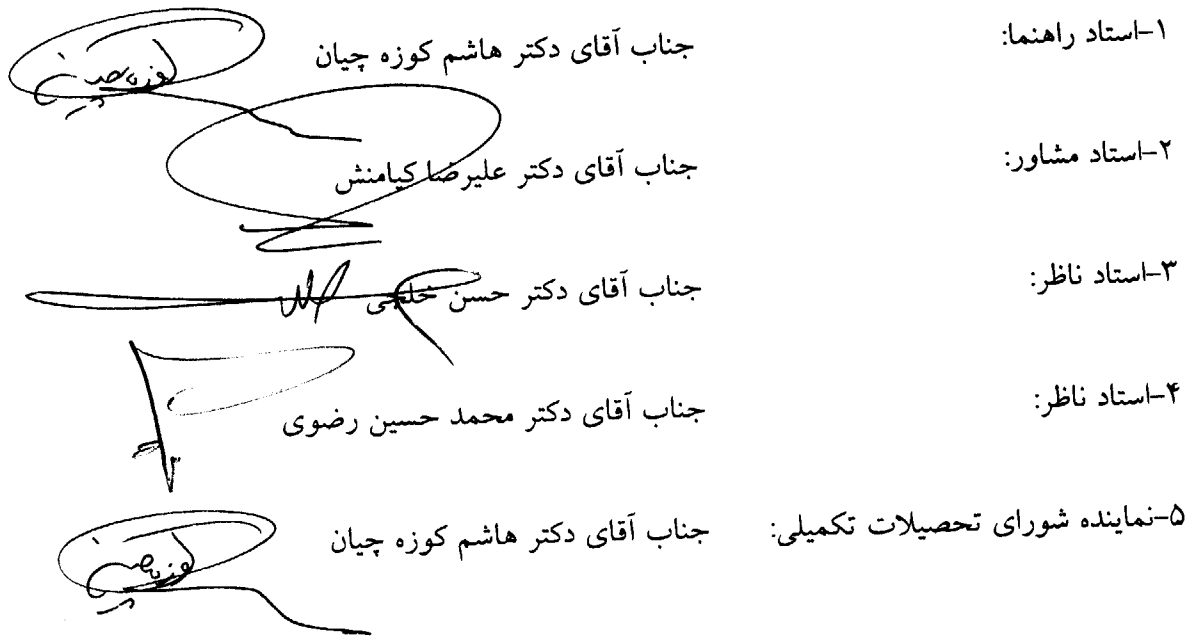 ۱-استاد راهنما: جناب آقای دکتر هاشم کوزه چیان
۲-استاد مشاور: جناب آقای دکتر علیرضا کیامنش
۳-استاد ناظر: جناب آقای دکتر حسن خلجی
۴-استاد ناظر: جناب آقای دکتر محمد حسین رضوی
۵-نماینده شورای تحصیلات تکمیلی: جناب آقای دکتر هاشم کوزه چیان